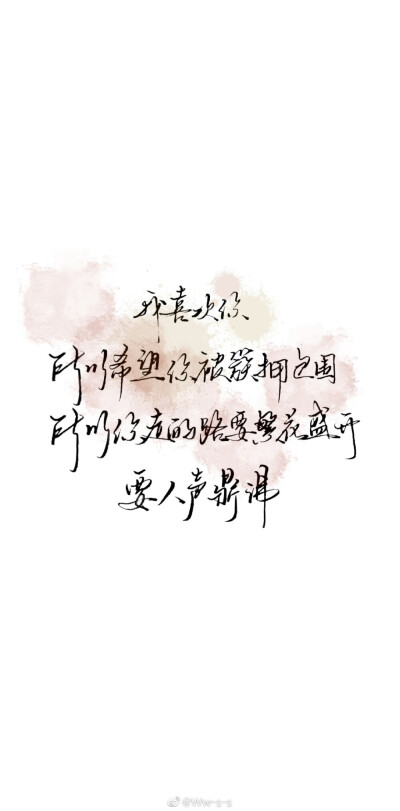 我喜欢你、
所以希望你被簇拥包围
所以你走的路要繁花盛开
要人声鼎沸
@Ww-s-s